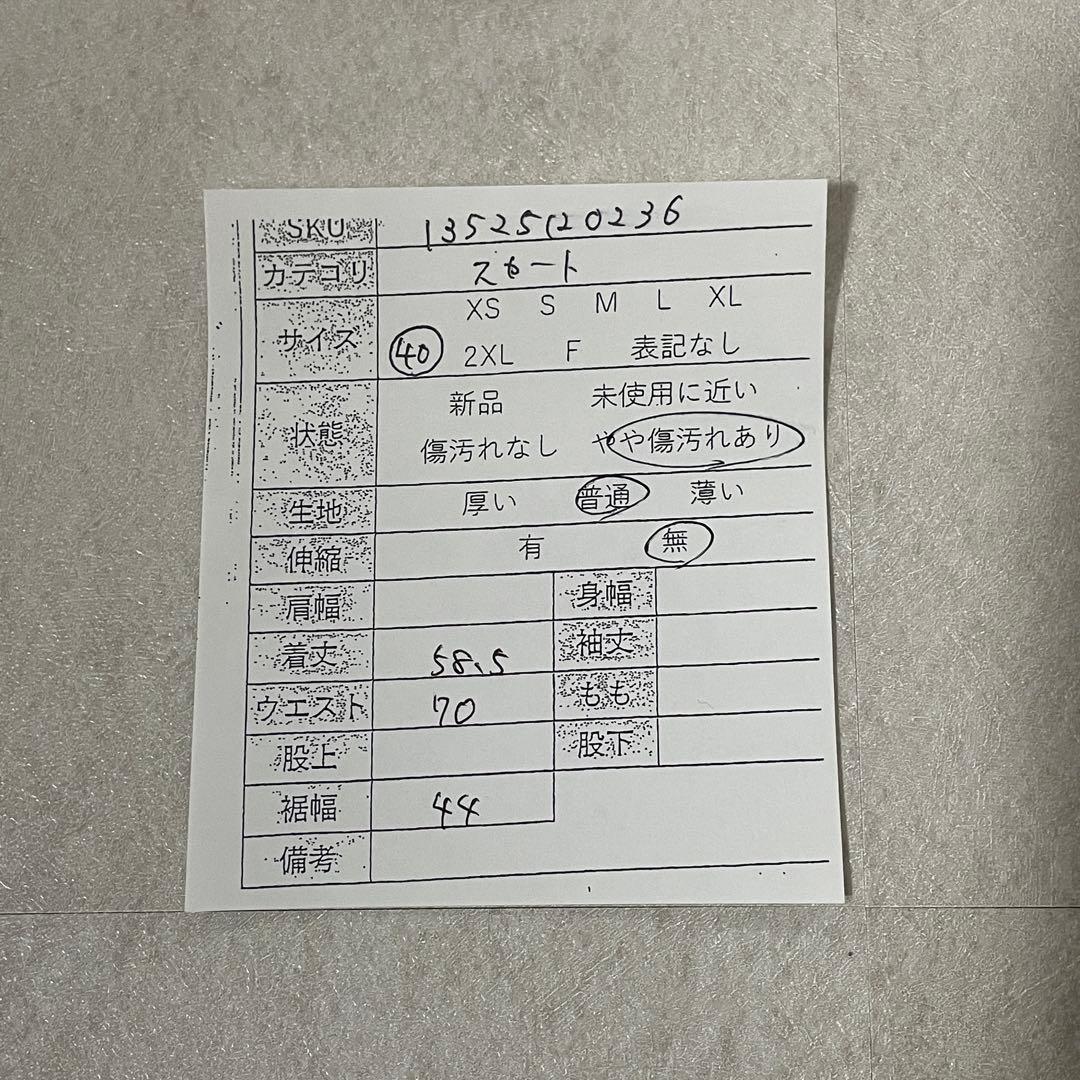 SKU 13525120236
カテゴリ スカート
サイズ XS S M L XL
40 2XL F 表記なし
状態 新品 未使用に近い
傷汚れなし やや傷汚れあり
生地 厚い 普通 薄い
伸縮 有 無
肩幅 身幅
着丈 58.5 袖丈
ウエスト 70 もも
股上 股下
裾幅 44
備考